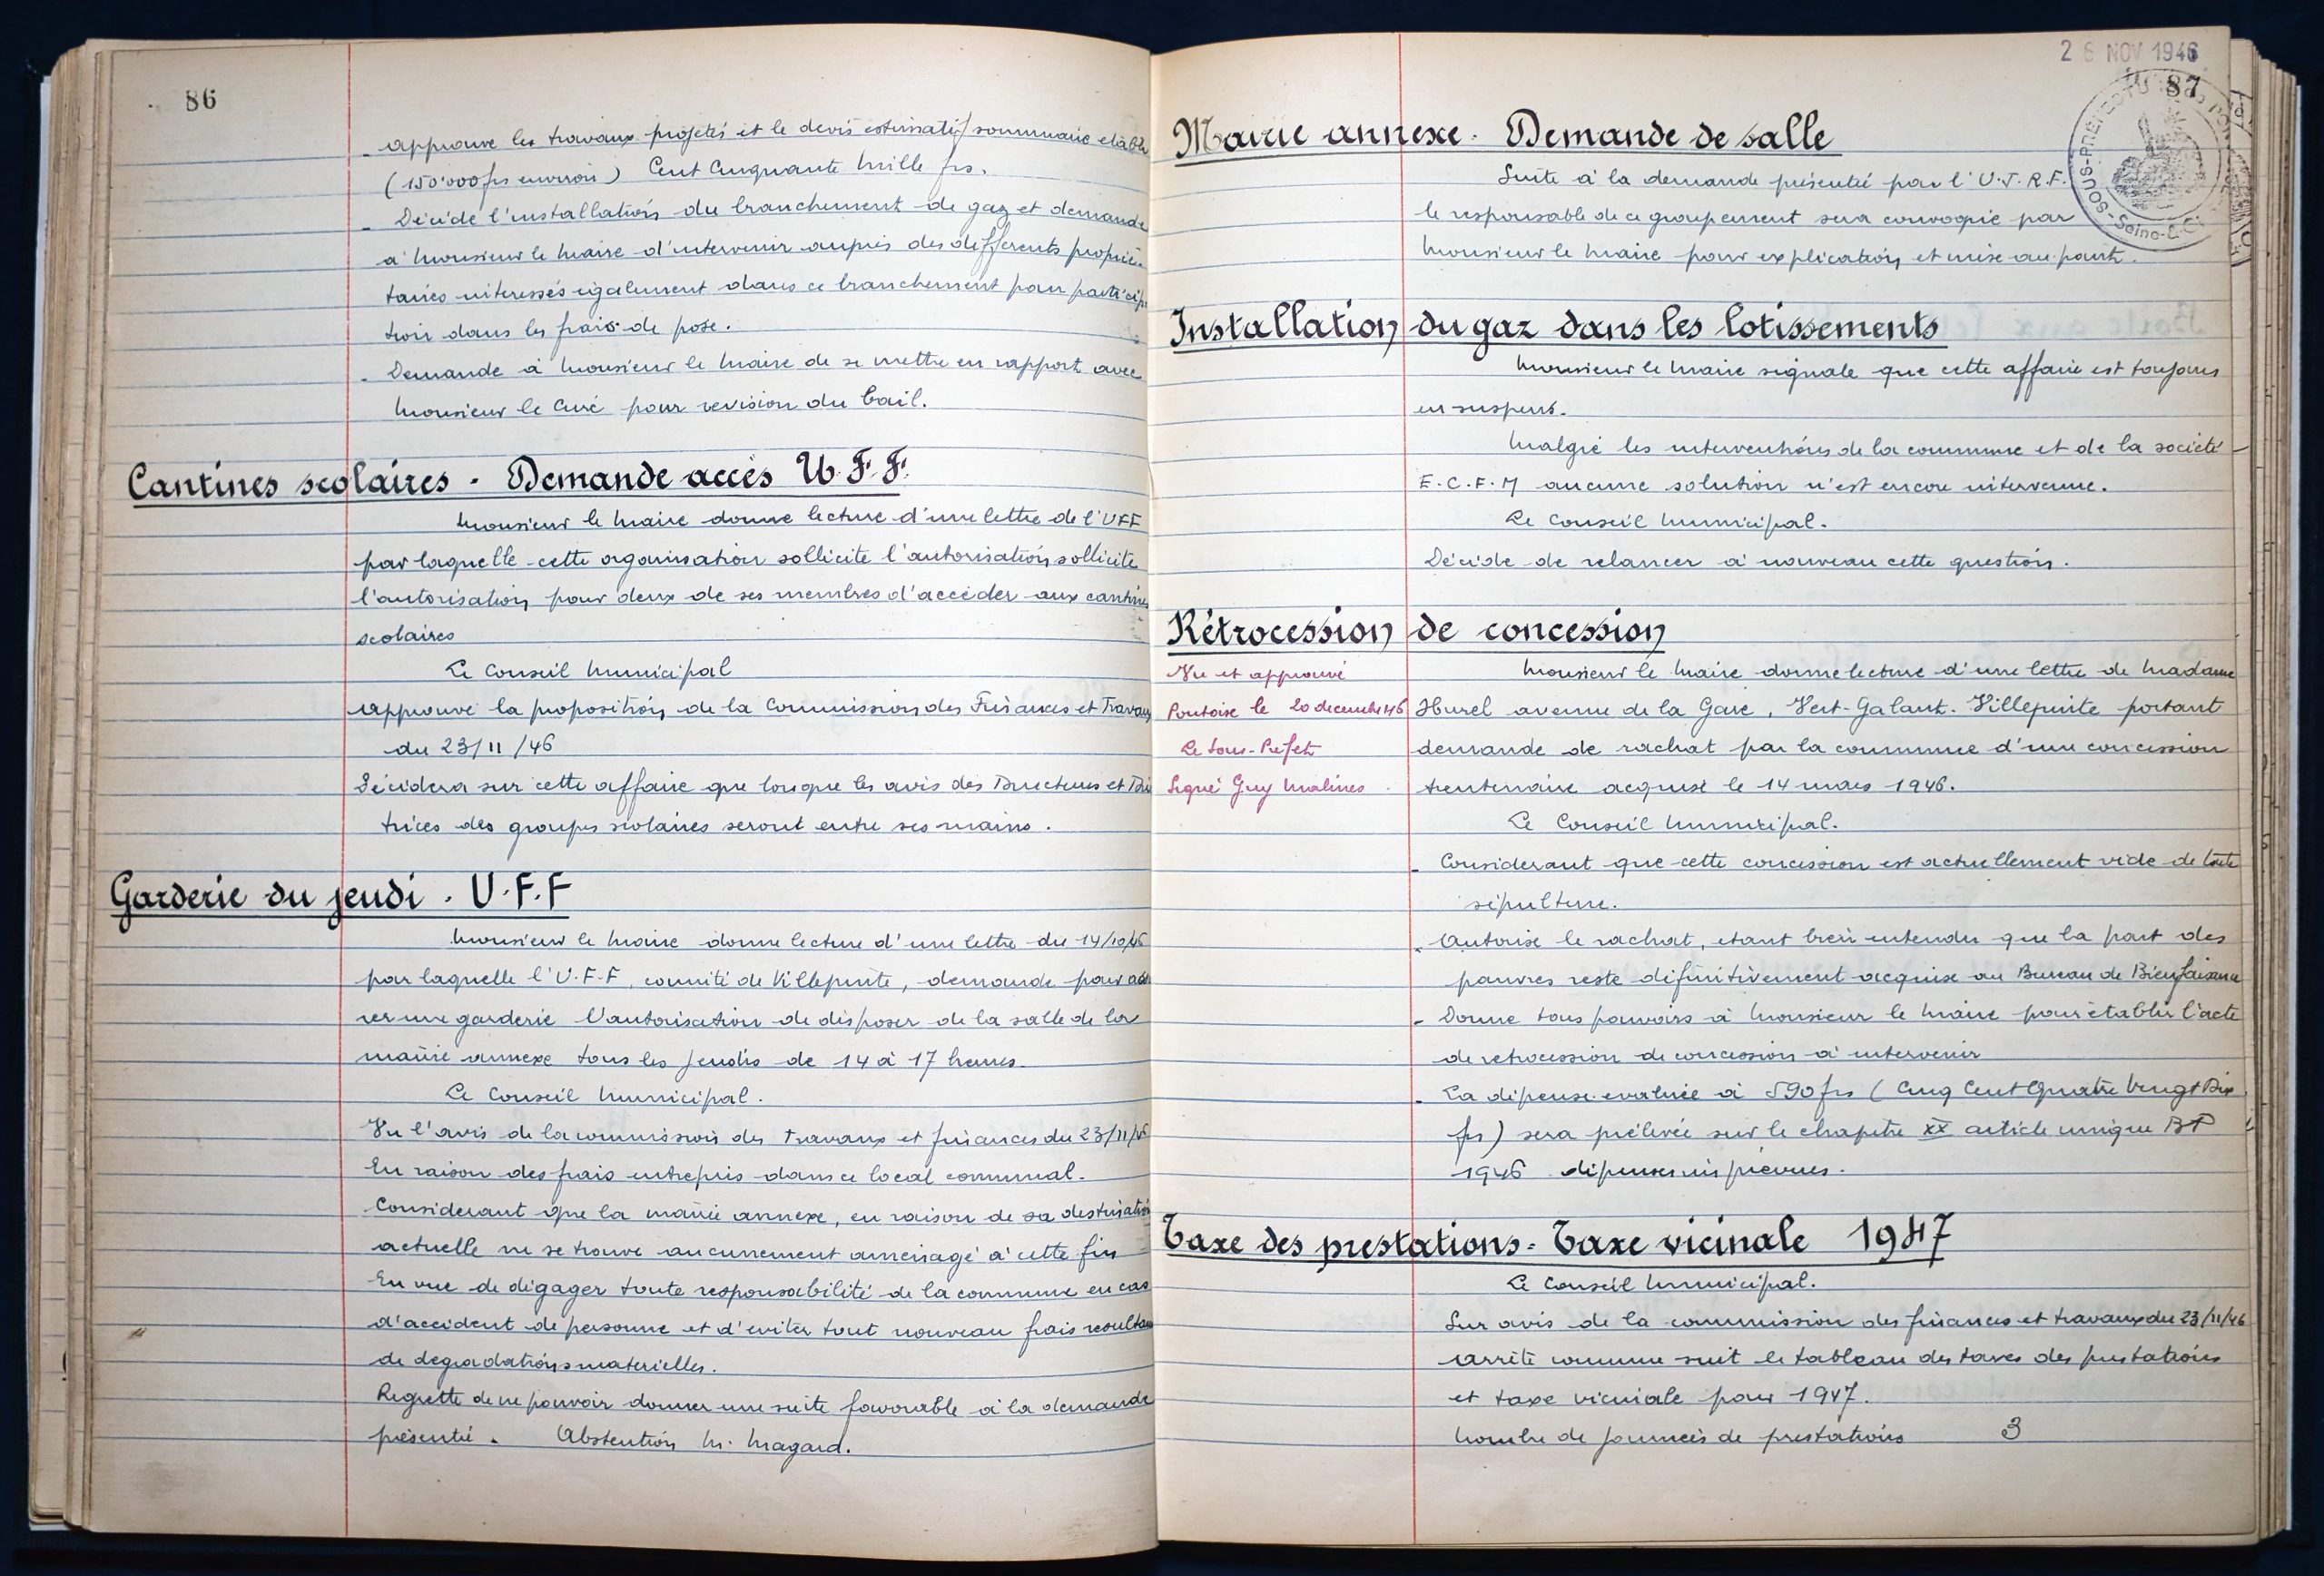 86
- approuve les travaux projetés et le devis estimatif sommaire établi
(150.000 frs environ) Cent Cinquante Mille frs.
- Décide l'installation du branchement de gaz et demande
à Monsieur le Maire d'intervenir auprès des différents proprié-
taires intéressés également dans ce branchement pour particip
tion dans les frais de pose.
- Demande à Monsieur le Maire de se mettre en rapport avec
Monsieur le Curé pour revision du bail.
Cantines scolaires - Demande accès U.F.F.
Monsieur le Maire donne lecture d'une lettre de l'UFF
par laquelle cette organisation sollicite l'autorisation sollicite
l'autorisation pour deux de ses membres d'accéder aux cantines
scolaires
Le Conseil Municipal
Approuve la proposition de la Commission des Finances et Travaux
du 23/11/46
Décidera sur cette affaire que lorsque les avis des Directeurs et Di
trices des groupes scolaires seront entre ses mains.
Garderie du jeudi . U.F.F
Monsieur le Maire donne lecture d'une lettre du 14/10/46
par laquelle l'U.F.F, comité de Villepinte, demande pour
rer une garderie l'autorisation de disposer de la salle de la
mairie annexe tous les jeudis de 14 à 17 heures.
Le Conseil Municipal.
Vu l'avis de la commission des travaux et finances du 23/11/46
En raison des frais entrepris dans ce local communal.
Considerant que la mairie annexe, en raison de sa destination
actuelle ne se trouve aucunement aménagé à cette fin
En vue de dégager toute responsabilité de la commune en cas
d'accident de personne et d'eviter tout nouveau frais resultant
de degradations materielles.
Regrette de ne pouvoir donner une suite favorable à la demande
présentée. Abstention M. Magard.
26 NOV 1946
87
SOUS-PRÉFECTURE
Seine-&-O
Mairie annexe. Demande de salle
Suite à la demande présentée par l'U.J.R.F.
le responsable de ce groupement sera convoqué par
Monsieur le Maire pour explication et mise au point.
Installation du gaz dans les lotissements
Monsieur le Maire signale que cette affaire est toujours
en suspens.
Malgré les interventions de la commune et de la société
E.C.F.M aucune solution n'est encore intervenue.
Le Conseil Municipal.
Décide de relancer à nouveau cette question.
Rétrocession de concession
Vu et approuvé
Pontoise le 20 decembre 46
Le Sous-Prefet
Signé Guy Malines
Monsieur le Maire donne lecture d'une lettre de Madame
Hurel avenue de la Gare, Vert-Galant. Villepinte portant
demande de rachat par la commune d'une concession
trentenaire acquise le 14 mars 1946.
Le Conseil Municipal.
- Considerant que cette concession est actuellement vide de toute
sépulture.
- Autorise le rachat, etant bien entendu que la part des
pauvres reste définitivement acquise au Bureau de Bienfaisance
- Donne tous pouvoirs à Monsieur le Maire pour établir l'acte
de retrocession de concession à intervenir
- La dépense evaluée à 590 frs (Cinq Cent Quatre Vingt Dix
frs) sera prélevée sur le chapitre XX article unique BP
1946 dépenses imprévues.
Taxe des prestations - Taxe vicinale 1947
Le Conseil Municipal.
Sur avis de la commission des finances et travaux du 23/11/46
Arrête comme suit le tableau des taxes des prestations
et taxe vicinale pour 1947.
Nombre de journées de prestations 3